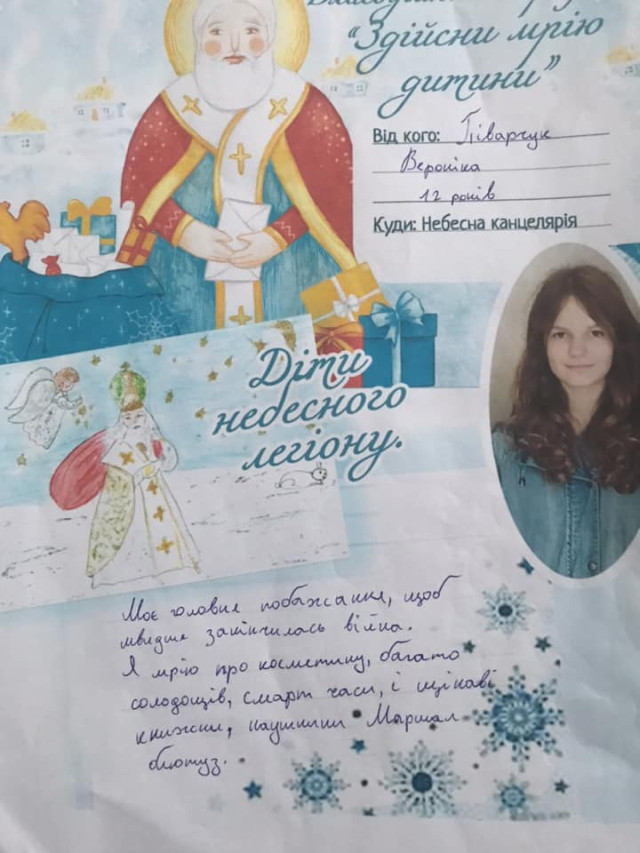 “Здійсни мрію
дитини”
Від кого: Піварчук
Вероніка
12 років
Куди: Небесна канцелярія
Діти
небесного
легіону.
Моє головне побажання, щоб
швидше закінчилась війна.
Я мрію про косметику, багато
солодощів, смарт часи, і цікаві
книжки, наушники Маршал
блютуз.